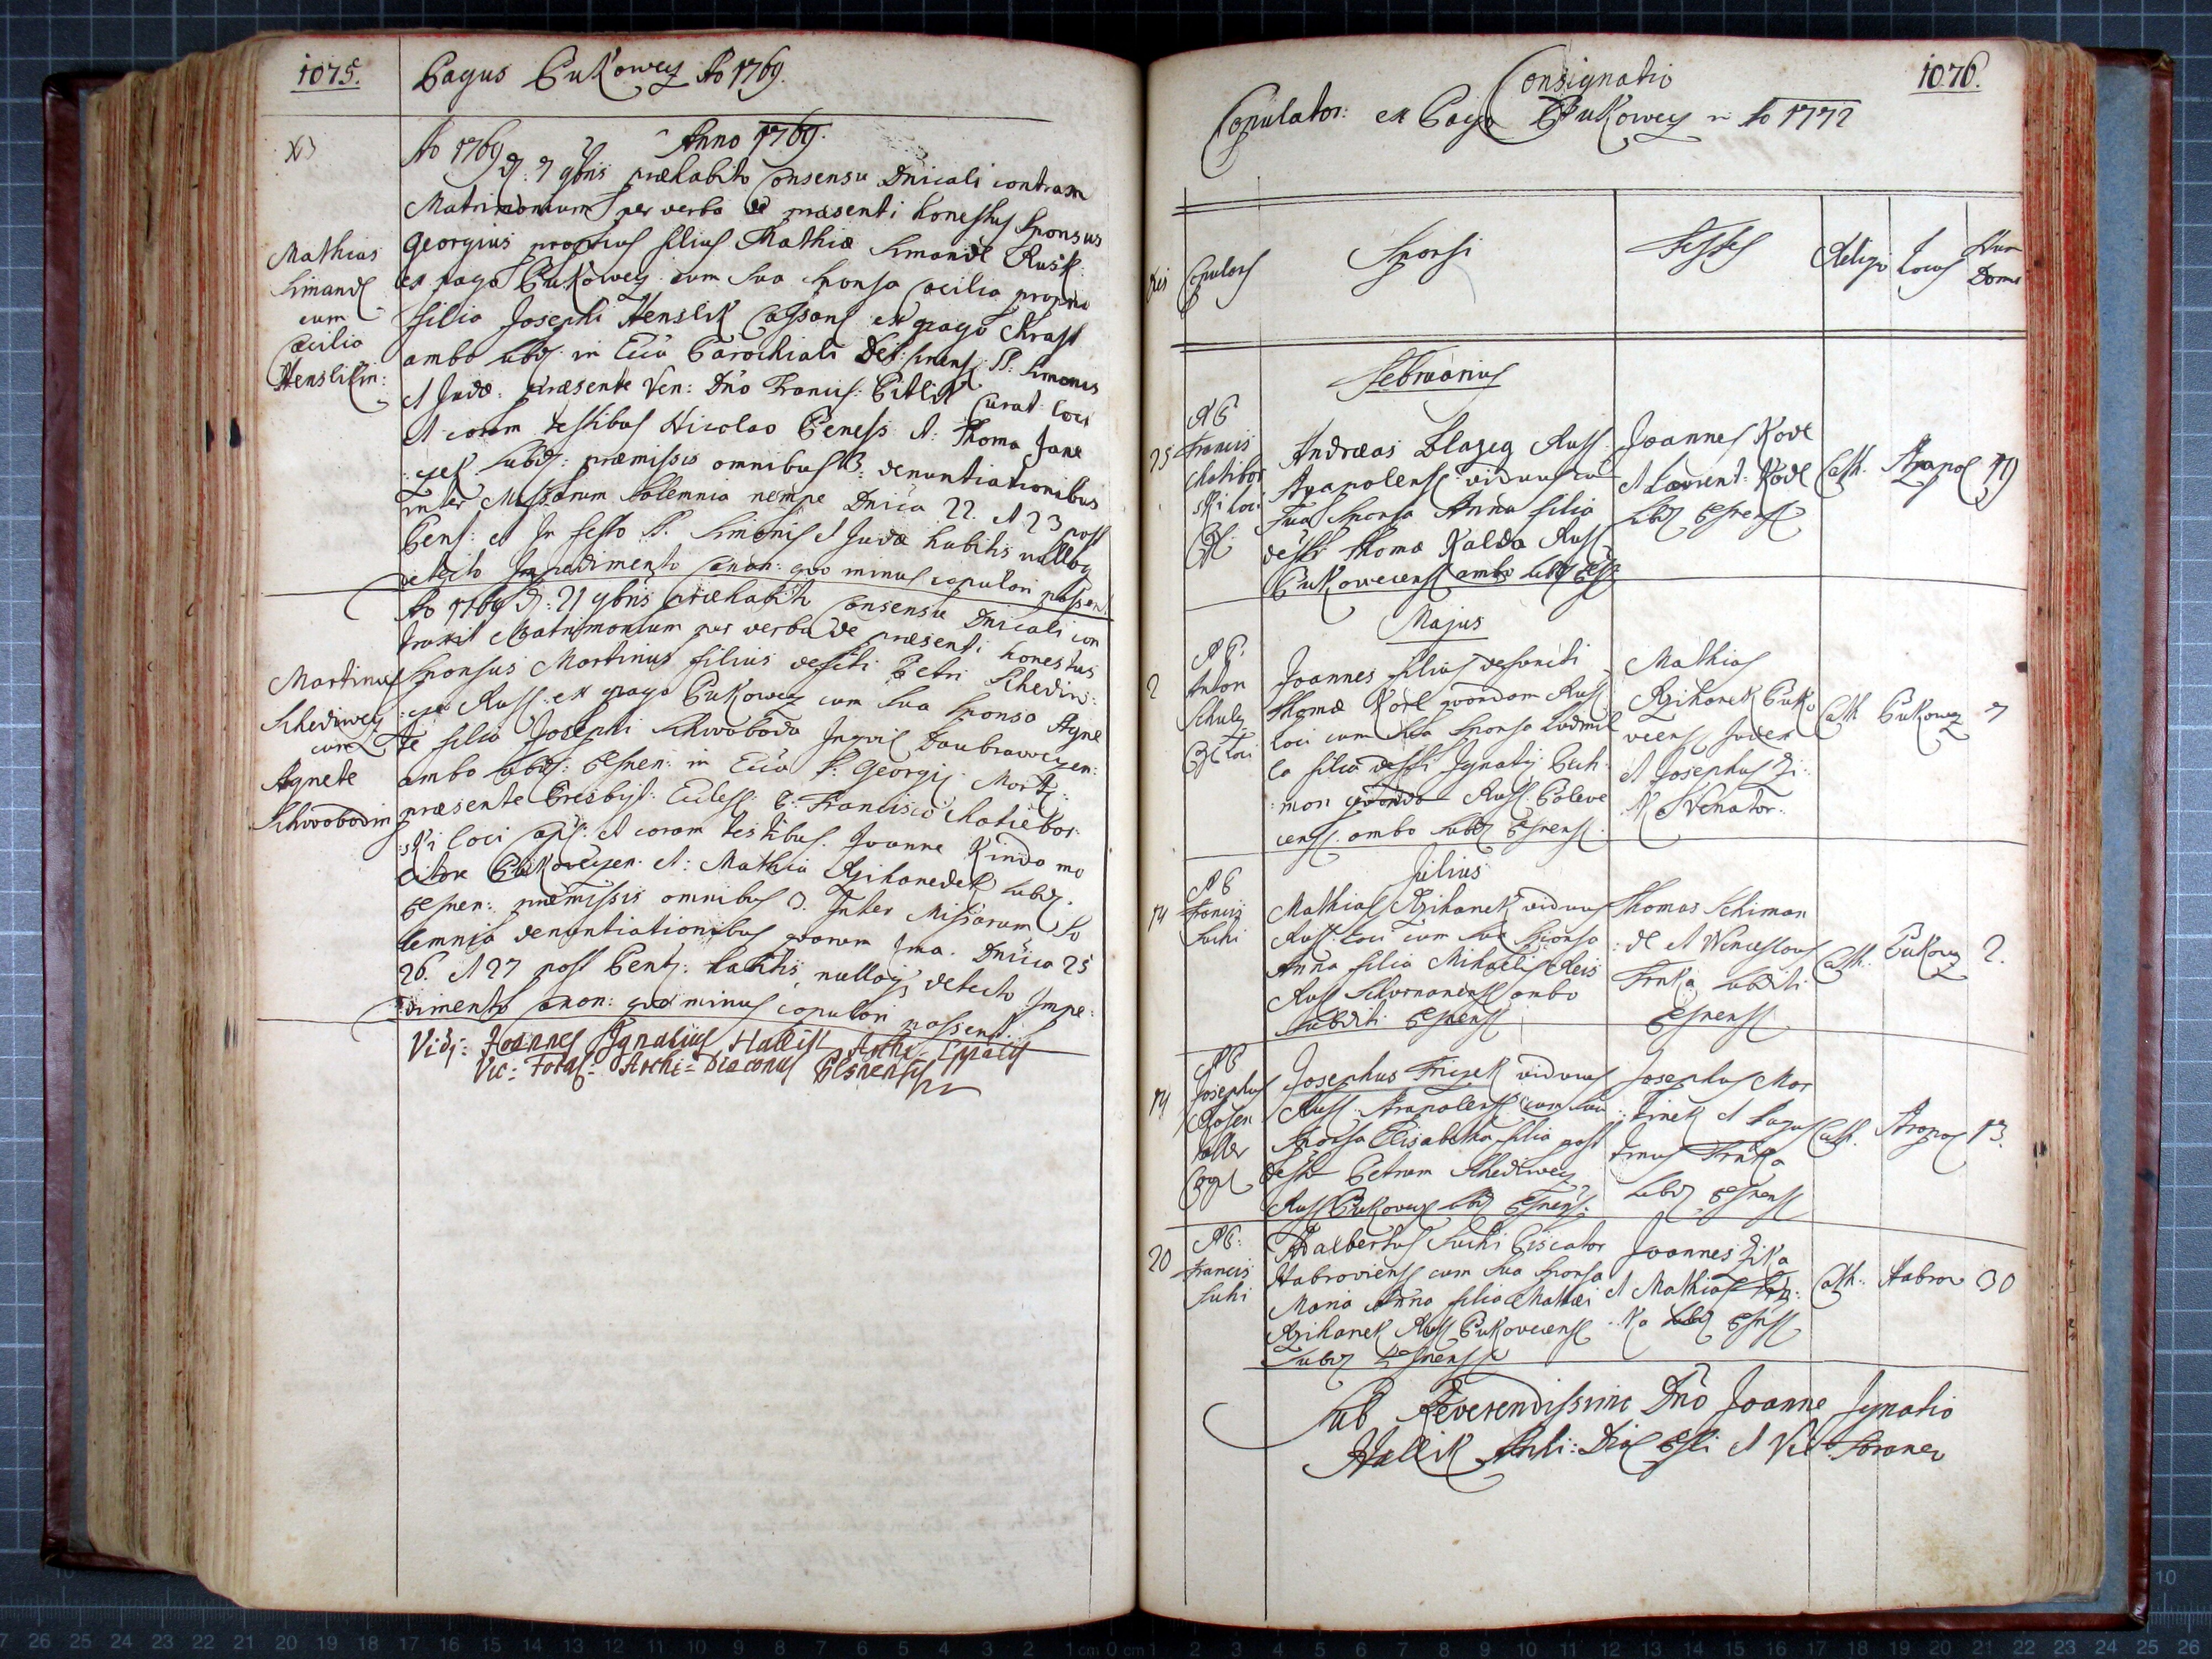 1075.
Pagus Pukowcz Ao 1769.
Anno 1769.
Ao 1769 d: 7 9bris præhabito Consensu Dnicali contraxit
Matrimonium per verba de præsenti honestus Sponsus
Georgius proprius filius Mathiæ Simandl Rust:
ex pago Pukowcz cum sua Sponsa Cæcilia propria
filia Josephi Henslik ex pago Chrast
ambo subd: in Ecc̃a Parochiali SS: Simonis
et Judæ. præsente Ven: Dño Francis: Pitlik Curat: loci
et coram testibus Nicolao Beness et: Thoma Jane
czek subd: præmissis omnibus 3. denuntiationibus
inter Missarum Solemnia nempe Dnica 22. et 23 post
Pent: et In festo SS. Simonis et Judæ habitis nulloq
detecto Impedimento Canon: quo minus copulari possent.
Mathias
Simandl
cum
Cæcilia
Henslikin:
Ao 1769 d: 21 9bris præhabito Consensu Dnicali con
traxit Matrimonium per verba de præsenti honestus
Sponsus Martinus filius defcti Petri Schediw:
cze Rust: ex pago Pukowcz cum sua Sponsa Agne
te filia Josephi Schwoboda Inqvil Daubrawczen:
ambo subd: in Ecc̃a S: Georgij Mart:
præsente Presbyt: Eccles: P: Francisco Chatiebor:
ski loci Cap: et coram testibus. Joanne Kinda mo
litore Pukowczen. et: Mathia Rzihanedek subd.
præmissis omnibus 3. Inter Missarum So
lemnia denuntiationibus quarum Ima. Dnica 25
26. et 27 post Pent: habitis, nulloq; detecto Impe:
dimento Canon: quo minus copulari possent.
Martinus
Schediwcy
cum
Agnete
Schwobodin
Vidj: Joannes Ignatius Hallik
Vic: Foran: Archi-Diaconus
1076.
Consignatio
Copulator: ex Pago Pukowcz in Ao 1772
Copulans
Sponsi
Testes
Religio
Locus
Num
Domus
Februarius
25
A P
Francis
Chatibor
ski loci
Andræas Blazeg Rust
viduus cu
sua Sponsa Anna filia
defti Thomæ Kalda Rust
Pukowecens ambo subd
Joannes Kodl
et Laurent: Kodl
subd
Cath.
19
Majus
2
A P:
Anton
Schulz
loci
Joannes filius defuncti
Thomæ Kodl quondam Rust
loci cum sua Sponsa Ludmil
la filia defti Ignatij Pech
man quondam Rust: Poleve
cens. ambo subd
Mathias
Rzihanek Puko
vecens Judex
et Josephus Zi:
ka Venator.
Cath
Pukowcz
7
Julius
14
A P
Francis
Suchi
Mathias Rzihanek viduus
Rust loci cum sua Sponsa
Anna filia Michaelis Reis
Rust ambo
subditi
Thomas Schiman
dl et Wenceslaus
Trnka subditi
Cath.
Pukowcz
2.
14
A P
Josephus
Rosen
taller
Josephus Triszek viduus
Rust: cum sua
Sponsa Elisabetha filia post
deft Petrum Schediwcy
Rust Pukovecens subd
Josephus Mar
tinek et
Trnka
subd
Cath.
13.
20
A P:
Francis
Suchi
Adalbertus Suchi Piscator
Habroviens cum sua Sponsa
Maria Anna filia Mathæi
Rzihanek Rust Pukovecens
subd
Joannes Zika
et Mathias Trn:
ka subd
Cath:
Habrow
30
Sub Reverendissimo Dño Joanne Ignatio
Hallik Archi: Dia et Vic: Foraneo